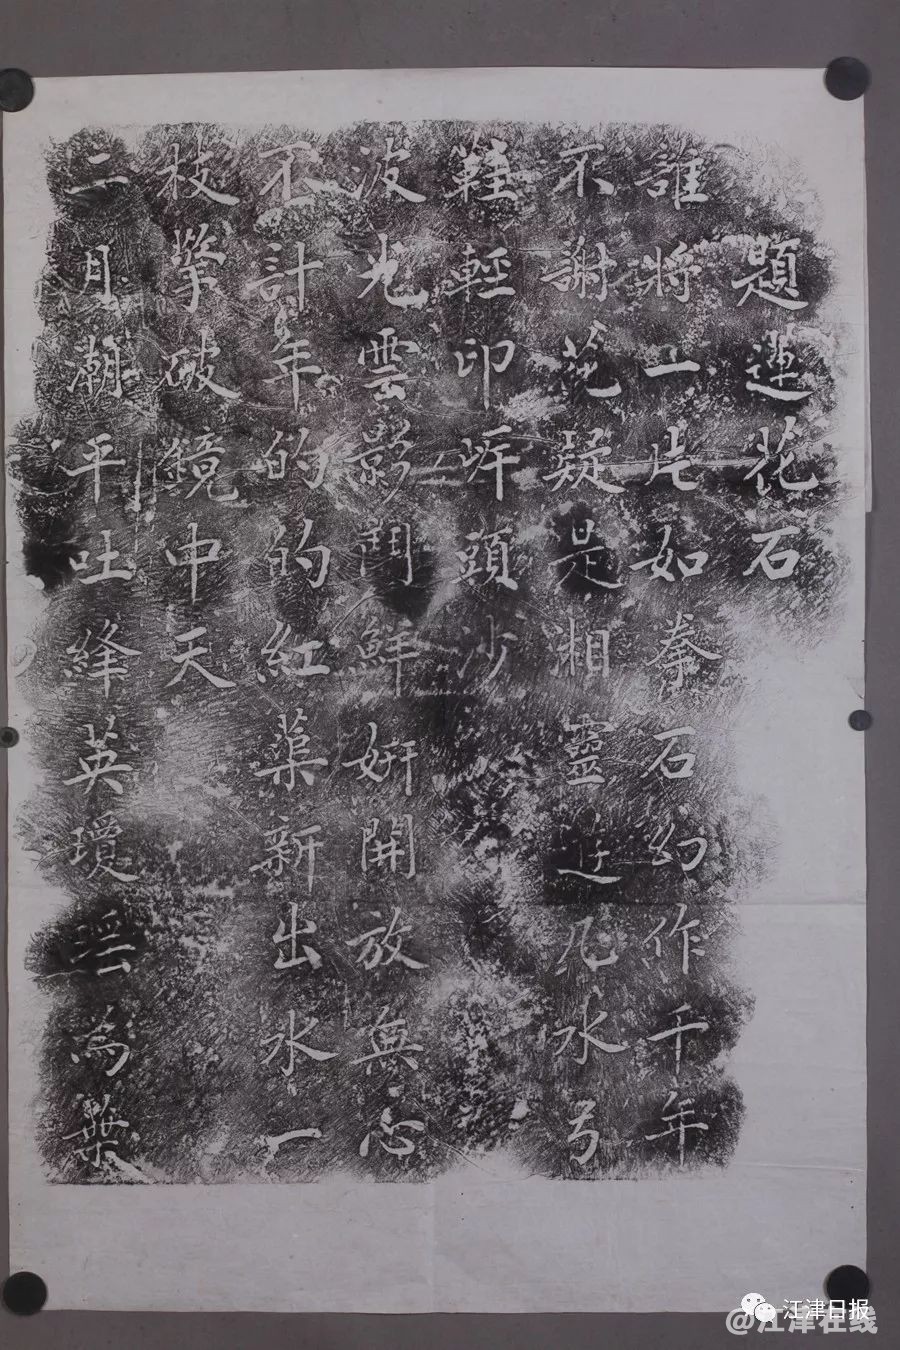 題蓮花石
誰將一片如拳石幻作千年
不謝花疑是湘靈遊凡水弓
鞋輕印岸頭沙
波光雲影鬥鮮妍開放無心
不計年的的紅蕖新出水一
枝擎破鏡中天
二月潮平吐絳英瓊瑤為蘂
江津日报
@江津在线